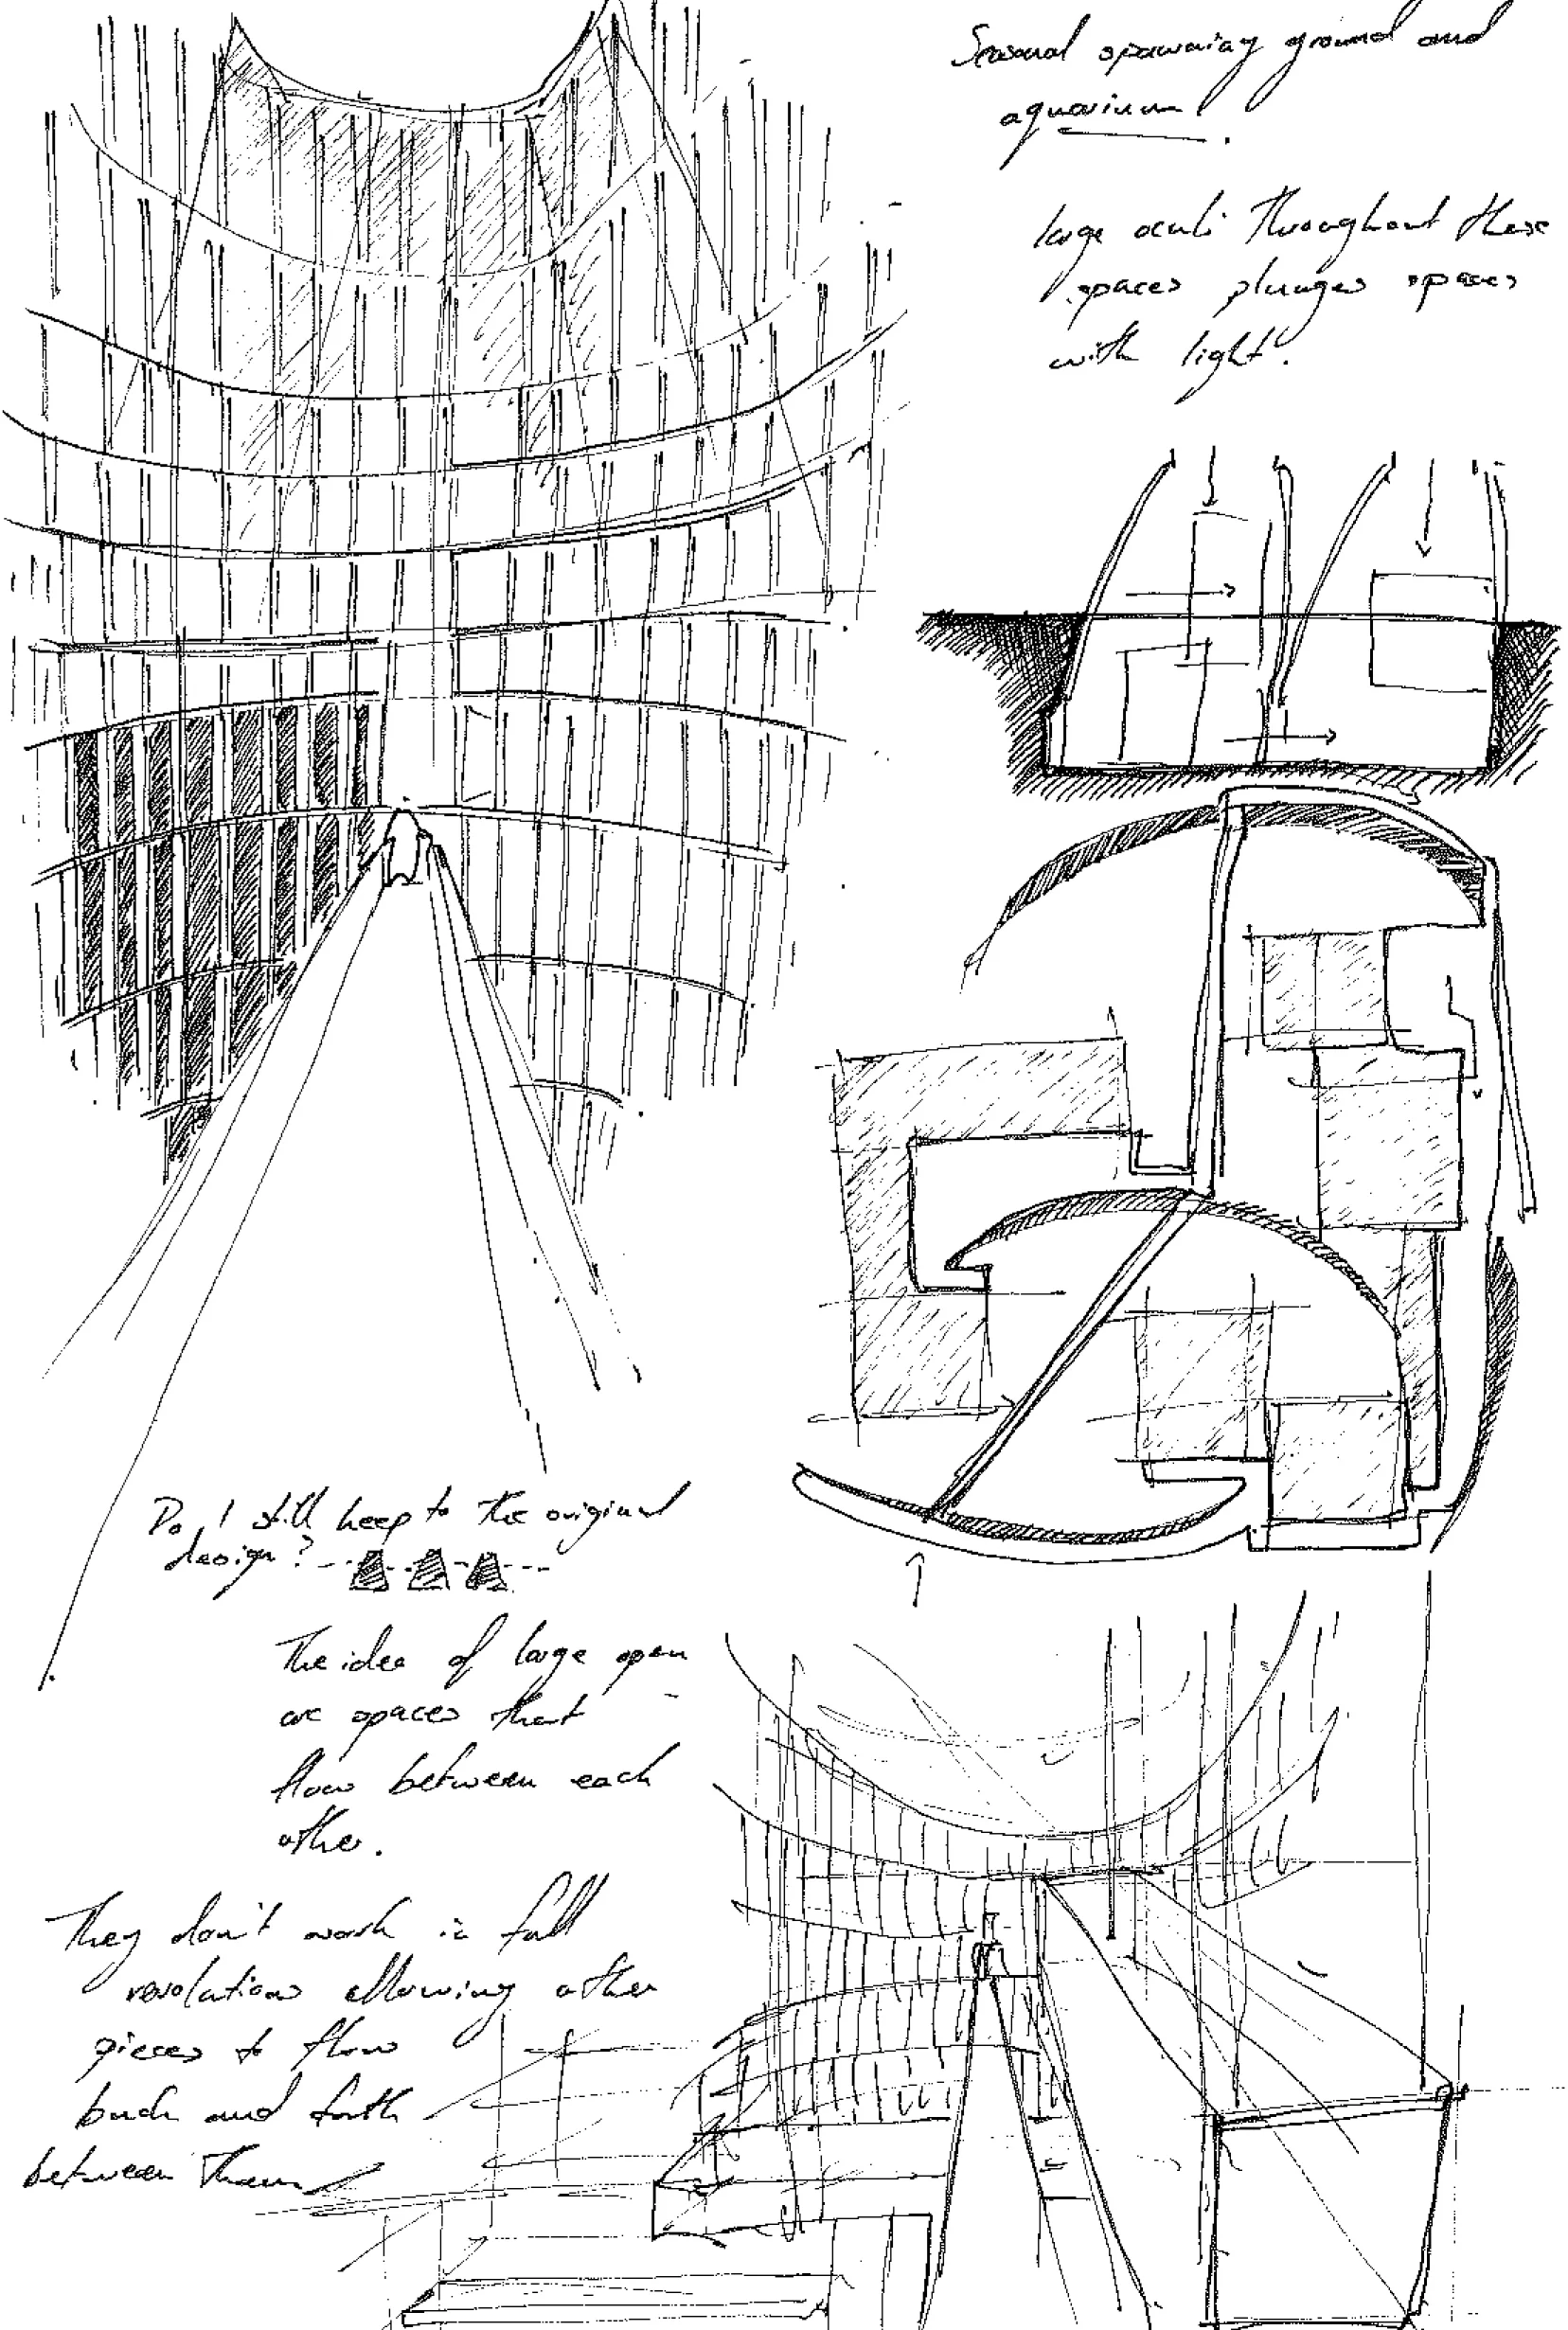 Seasonal spawning ground and
aquarium.
large oculi throughout these
spaces plunges spaces
with light.
Do I still keep to the original
design?
The idea of large open
arc spaces that
flow between each
other.
They don't work in full
revolutions allowing other
pieces to flow
back and forth
between them